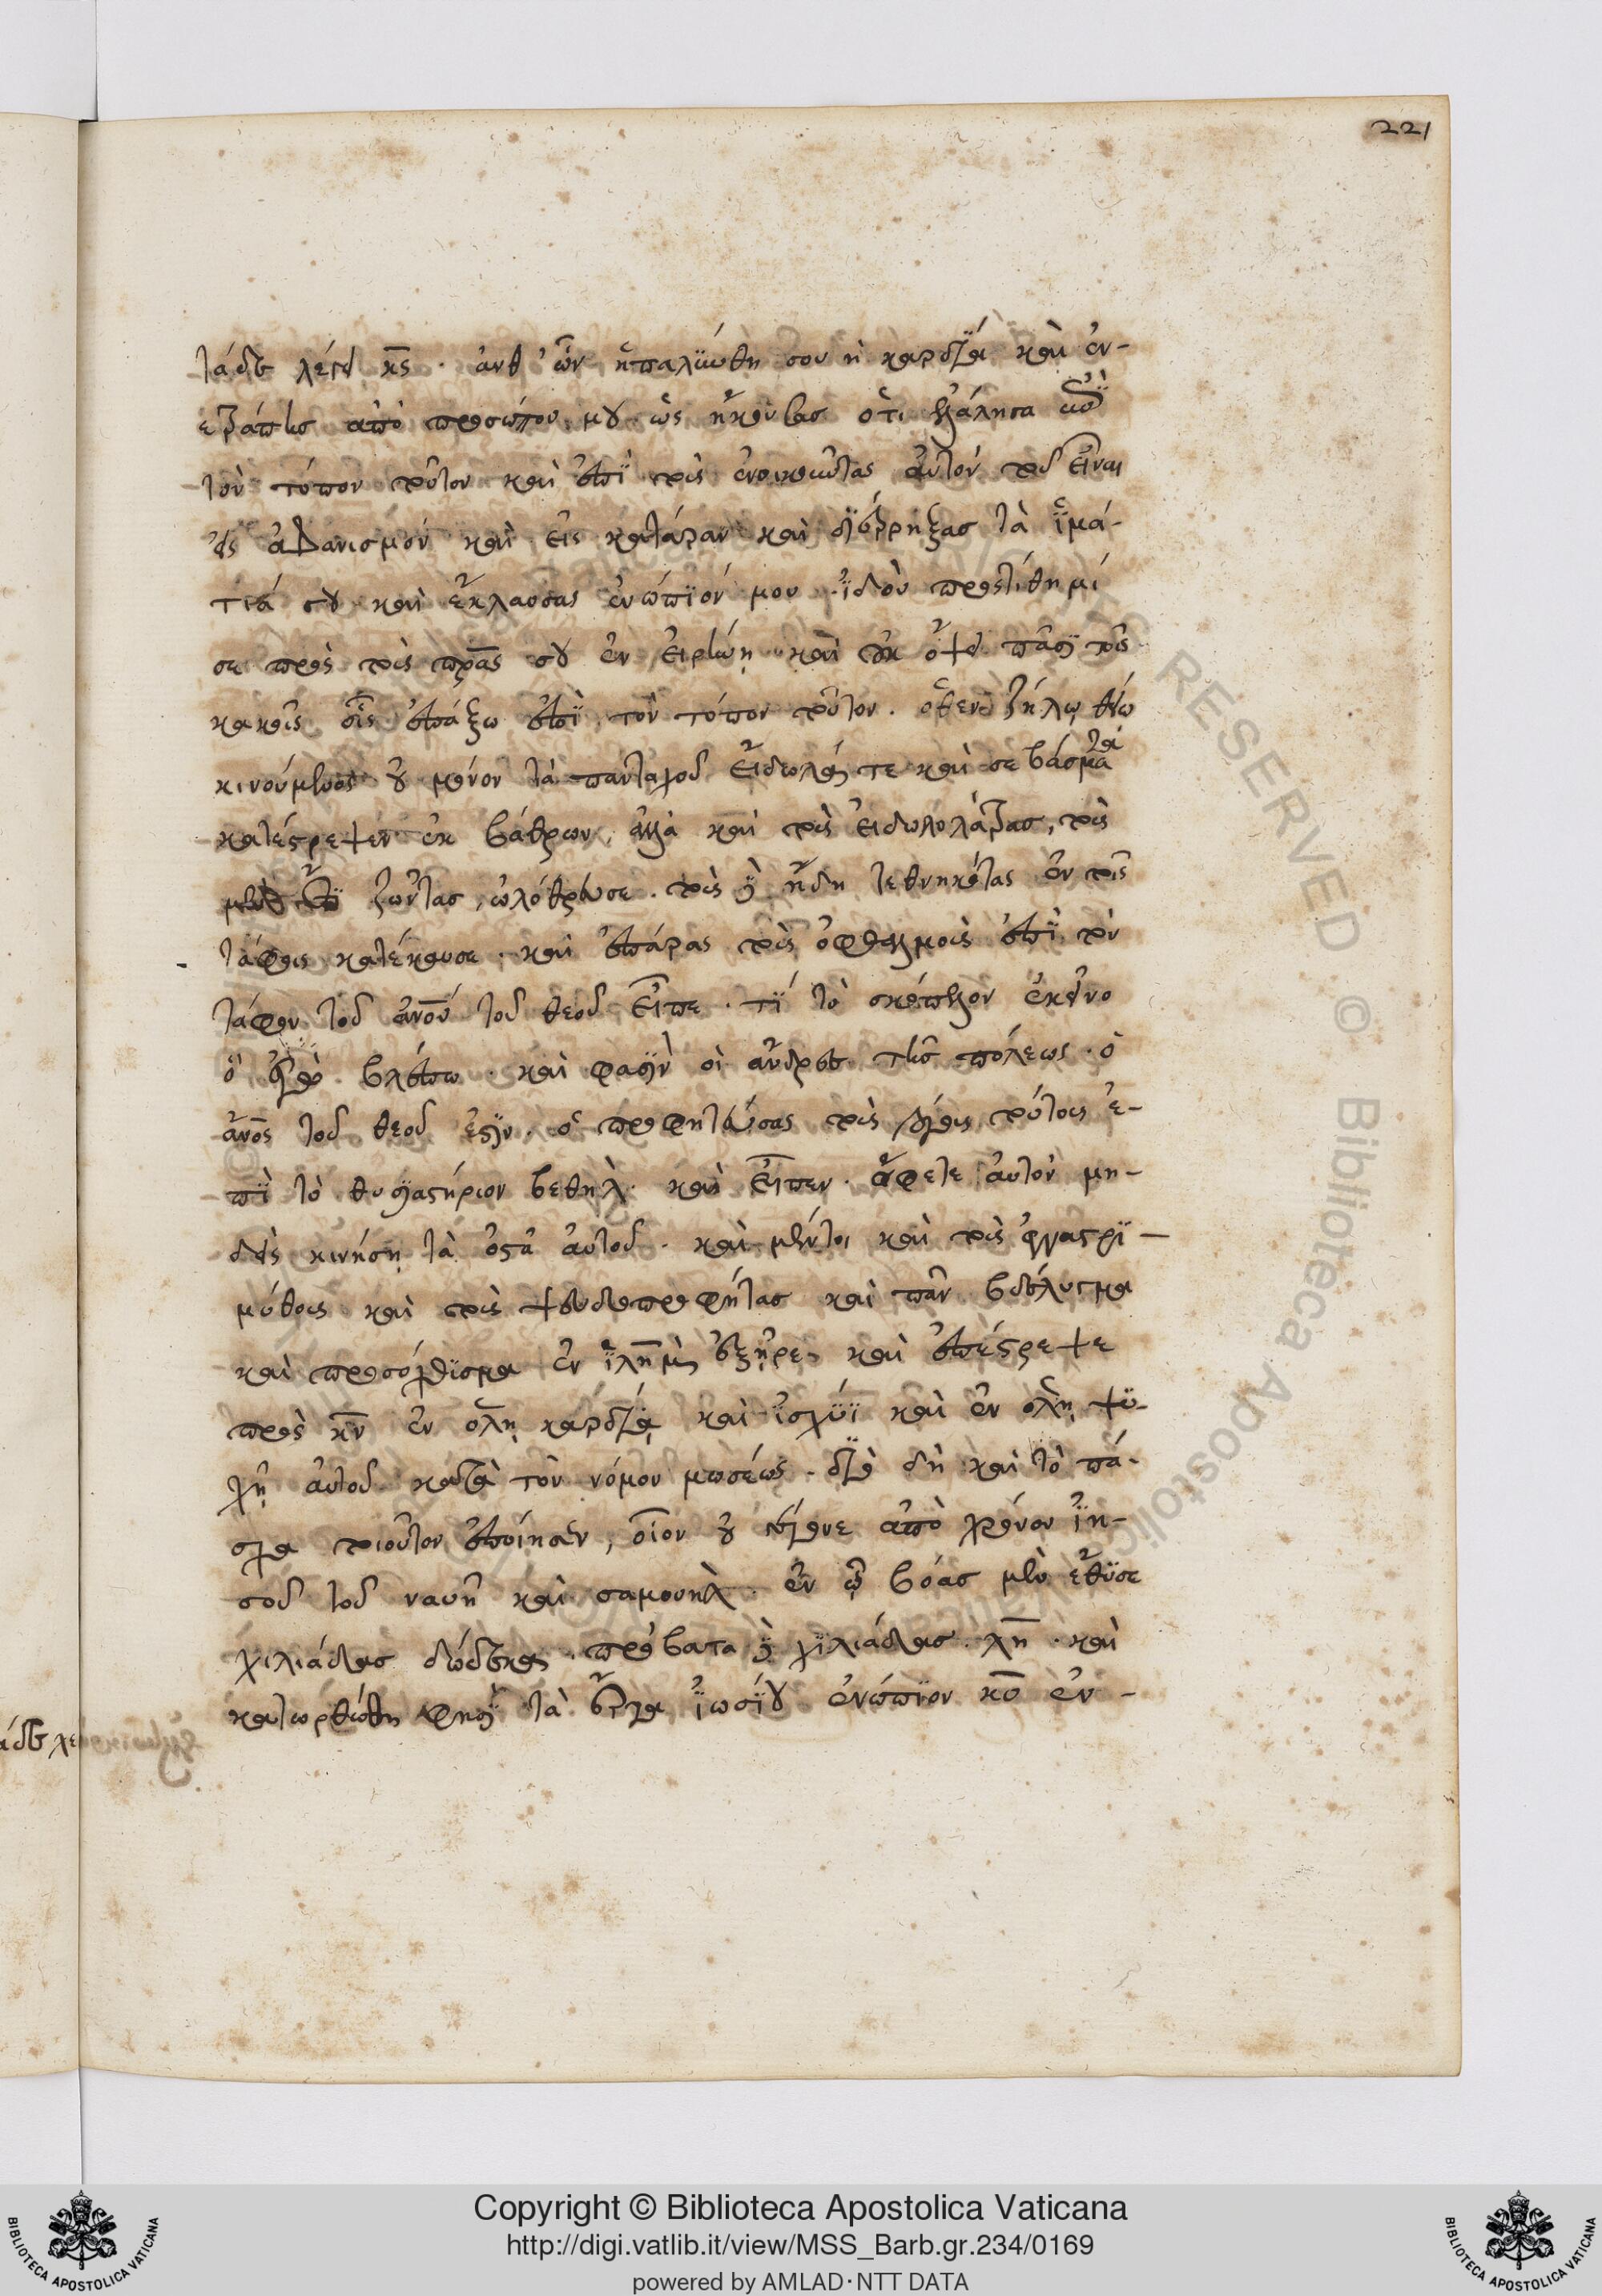 221
τάδε λέγει κς̄. ἀνθ' ὧν ἡπαλύνθη σου ἡ καρδία καὶ ἐν-
ετράπης ἀπὸ προσώπου μου ὡς ἤκουσας ὅτι ἐλάλησα ἐπὶ
τὸν τόπον τοῦτον καὶ ἐπὶ τοὺς ἐνοικοῦντας αὐτὸν τοῦ εἶναι
εἰς ἀφανισμὸν καὶ εἰς κατάραν καὶ διέρρηξας τὰ ἱμά-
τιά σου καὶ ἔκλαυσας ἐνώπϊόν μου. ἰδοὺ προστίθημί
σε πρὸς τοὺς πρ̄ας σου ἐν εἰρήνῃ καὶ οὐκ ὄψει πᾶσι τοῖς
κακοῖς οἷς ἐπάξω ἐπὶ τὸν τόπον τοῦτον. ὅθεν ζήλῳ θείῳ
κινούμενος οὐ μόνον τὰ πανταχοῦ εἴδωλά τε καὶ σεβάσματα
κατέστρεψεν ἐκ βάθρων, ἀλλὰ καὶ τοὺς εἰδωλολάτρας, τοὺς
μὲν ἔτι ζῶντας, ὠλόθρευσε. τοὺς δὲ ἤδη τεθνηκότας ἐν τοῖς
τάφοις κατέκαυσε. καὶ ἐπάρας τοὺς ὀφθαλμοὺς ἐπὶ τὸν
τάφον τοῦ ἀνο̄υ τοῦ θεοῦ εἶπε. τί τὸ σκόπελον ἐκεῖνο
ὃ ἐγὼ βλέπω. καὶ φασὶν οἱ ἄνδρες τῆς πόλεως. ὁ
ἄνο̄ς τοῦ θεοῦ ἐστὶν. ὁ προφητεύσας τοὺς λόγους τούτους ἐ-
πὶ τὸ θυσιαστήριον βεθήλ. καὶ εἶπεν. ἄφετε αὐτὸν μη-
δεὶς κινήσῃ τὰ ὀστᾶ αὐτοῦ. καὶ μέντοι καὶ τοὺς ἐγγαστρι-
μύθους καὶ τοὺς ψευδοπροφήτας καὶ πᾶν βδέλυγμα
καὶ προσόχθισμα ἐν ἱλη̄μ ἐξῆρε. καὶ ἐπέστρεψε
πρὸς κν̄ ἐν ὅλῃ καρδίᾳ καὶ ἰσχύϊ καὶ ἐν ὅλῃ ψυ-
χῇ αὐτοῦ κατὰ τὸν νόμον μωσέως. διὸ δὴ καὶ τὸ πά-
σχα τοιοῦτον ἐποίησεν, οἷον οὐ γέγονε ἀπὸ χρόνον ἰη-
σοῦ τοῦ ναυῆ καὶ σαμουὴλ. ἐν ᾧ βόας μὲν ἔθυσε
χιλιάδας δώδεκα. πρόβατα δὲ χιλιάδας λη̄. καὶ
κατωρθώθη φησὶ τὰ ἔργα ἰωσίου ἐνώπιον κο̄ ἐν-
Copyright © Biblioteca Apostolica Vaticana
http://digi.vatlib.it/view/MSS_Barb.gr.234/0169
powered by AMLAD·NTT DATA
BIBLIOTECA APOSTOLICA VATICANA
BIBLIOTECA APOSTOLICA VATICANA